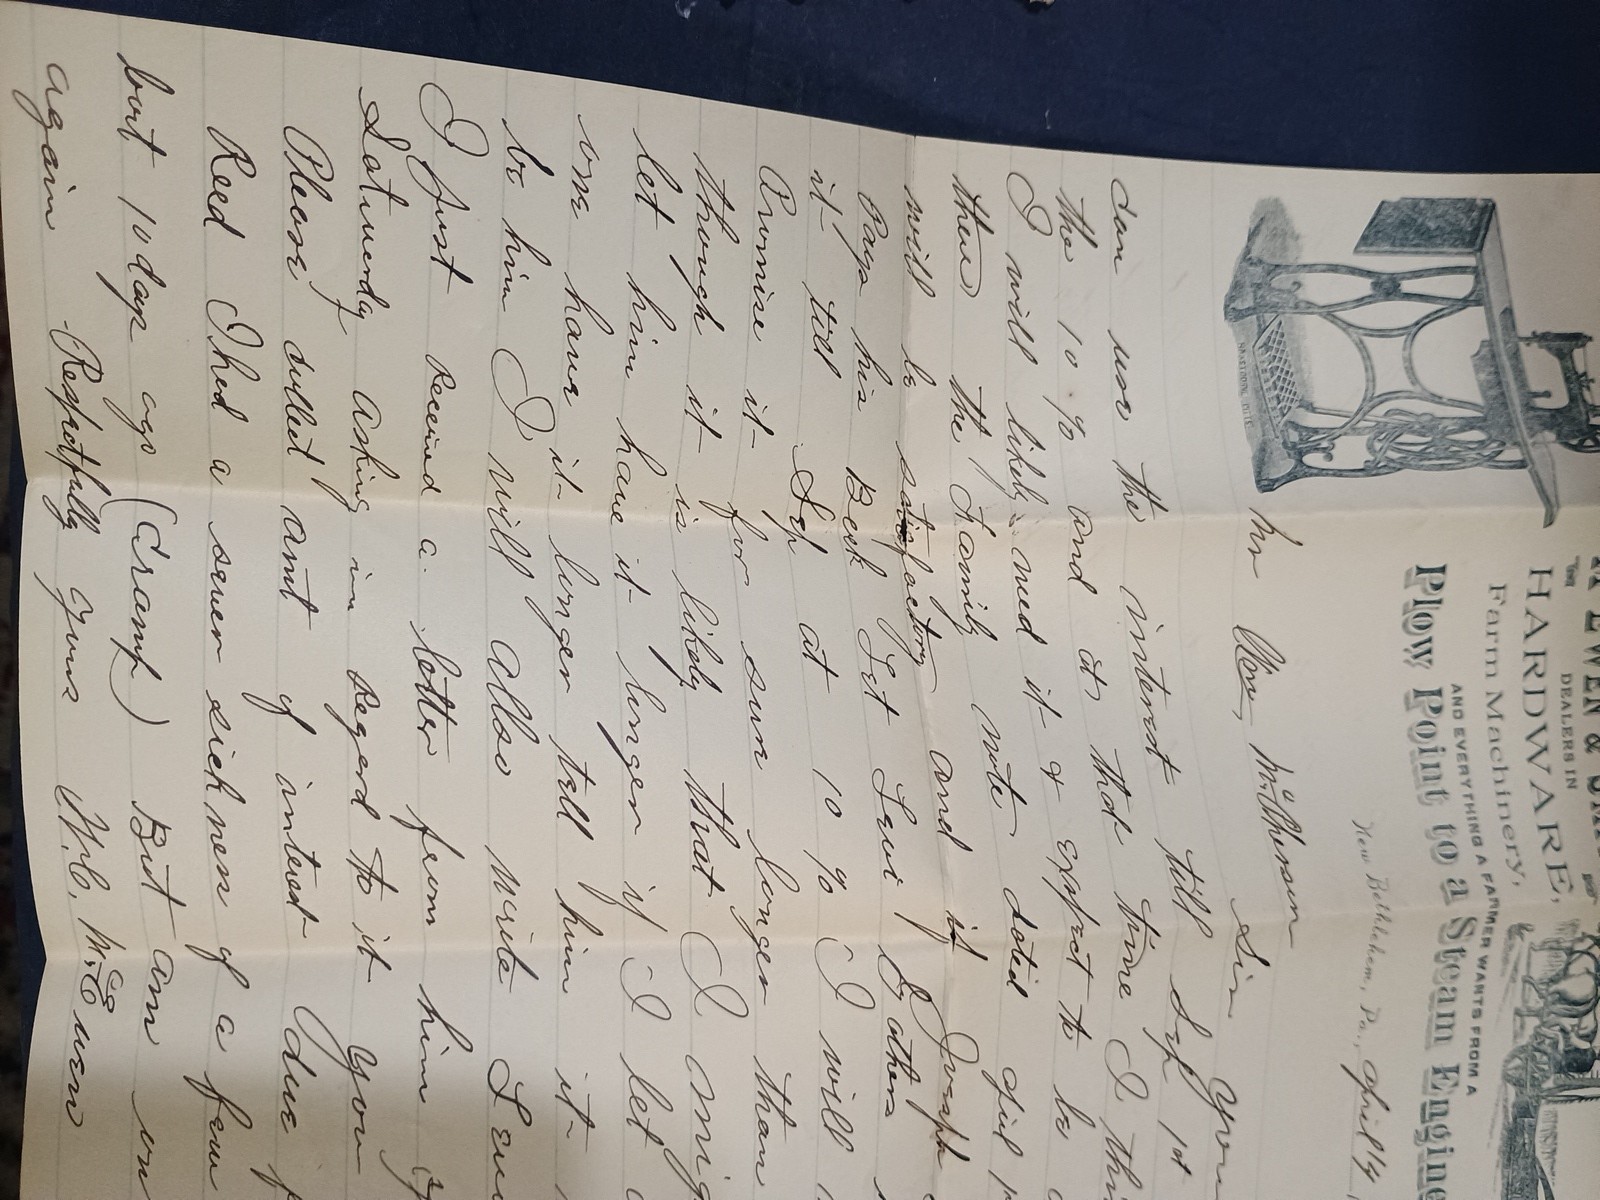 THE
DEALERS IN
HARDWARE,
Farm Machinery,
AND EVERYTHING A FARMER WANTS FROM A
Plow Point to a Steam Engine
New Bethlehem, Pa., April 14
Mr Wm, McPherson
Sir you
can use the interest till Sep 1st
the 10 % and at that time I thi
I will likely need it & expect to be
there the Family note dated april
will be satisfactory and if Joseph
Pays his Back Let Levi Gathers
it till Sep at 10 % I will
Promise it for sure longer than
through it is likely that I mig
let him have it longer if I let
one have it longer tell him it
be him I will Allso write Leu
I just Received a letter from him
Saturday Asking in Regard to it you
Please dulled amt of interest due
Reed I had a seven sickness of a few
but 10 days ago (Cramp) But am
again Respectfully yours W.C. McEwen